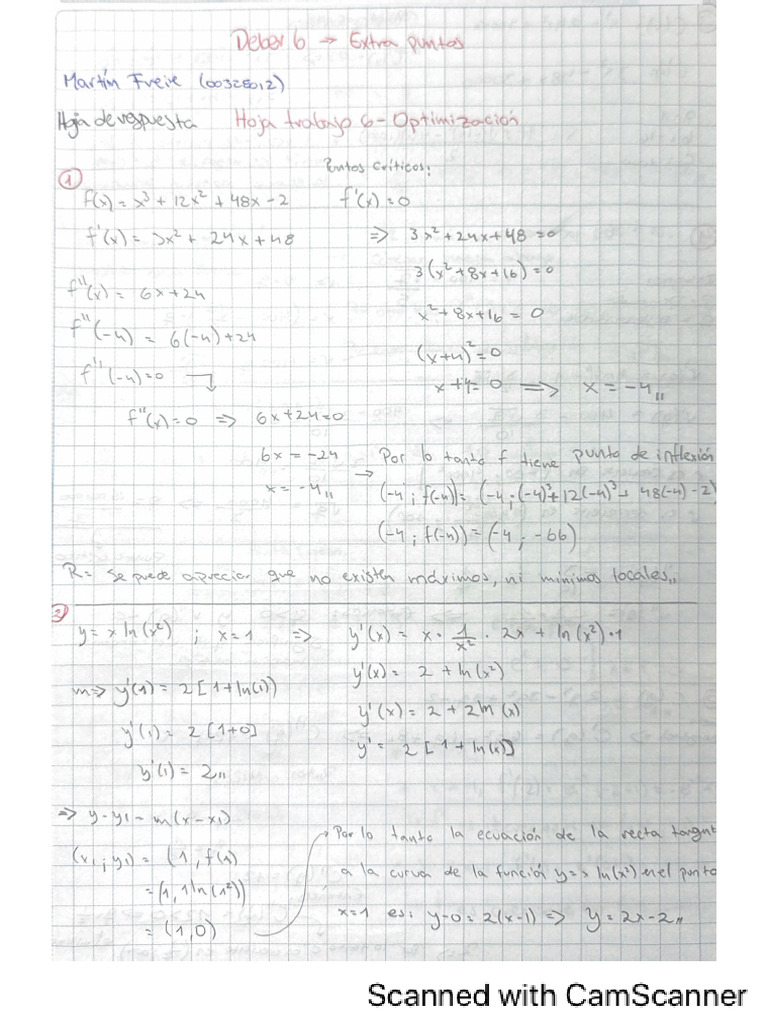 Deber 6 → Extra puntos
Martín Freire (00328012)
Hoja de respuesta Hoja trabajo 6 - Optimización
Puntos Críticos:
① f(x) = x³ + 12x² + 48x - 2
f'(x) = 3x² + 24x + 48
f''(x) = 6x + 24
f''(-4) = 6(-4) + 24
f''(-4) = 0
f''(x) = 0 ⇒ 6x + 24 = 0
6x = -24
x = -4,,
f'(x) = 0
⇒ 3x² + 24x + 48 = 0
3(x² + 8x + 16) = 0
x² + 8x + 16 = 0
(x+4)² = 0
x + 4 = 0 ⇒ x = -4,,
→ Por lo tanto f tiene punto de inflexión
(-4 ; f(-4)) = (-4 ; (-4)³ + 12(-4)² + 48(-4) - 2)
(-4 ; f(-4)) = (-4 ; -66)
R = Se puede apreciar que no existen máximos, ni mínimos locales,,
② y = x ln(x²) ; x = 1 ⇒ y'(x) = x · 1/x² · 2x + ln(x²) · 1
y'(x) = 2 + ln(x²)
y'(x) = 2 + 2 ln (x)
y' = 2 [1 + ln(x)]
m ⇒ y'(1) = 2 [1 + ln(1)]
y'(1) = 2 [1+0]
y'(1) = 2,,
⇒ y - y1 = m(x - x1)
(x1 ; y1) = (1, f(1)
= (1, 1 ln(1²))
= (1, 0)
→ Por lo tanto la ecuación de la recta tangent
a la curva de la función y = x ln(x²) en el punto
x = 1 es: y - 0 = 2(x-1) ⇒ y = 2x - 2,,
Scanned with CamScanner